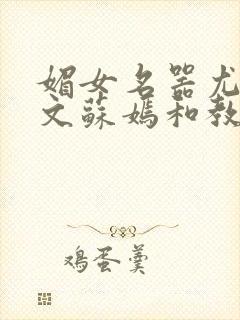 媚女名器尤
文蘇媽和教
鸡蛋羹